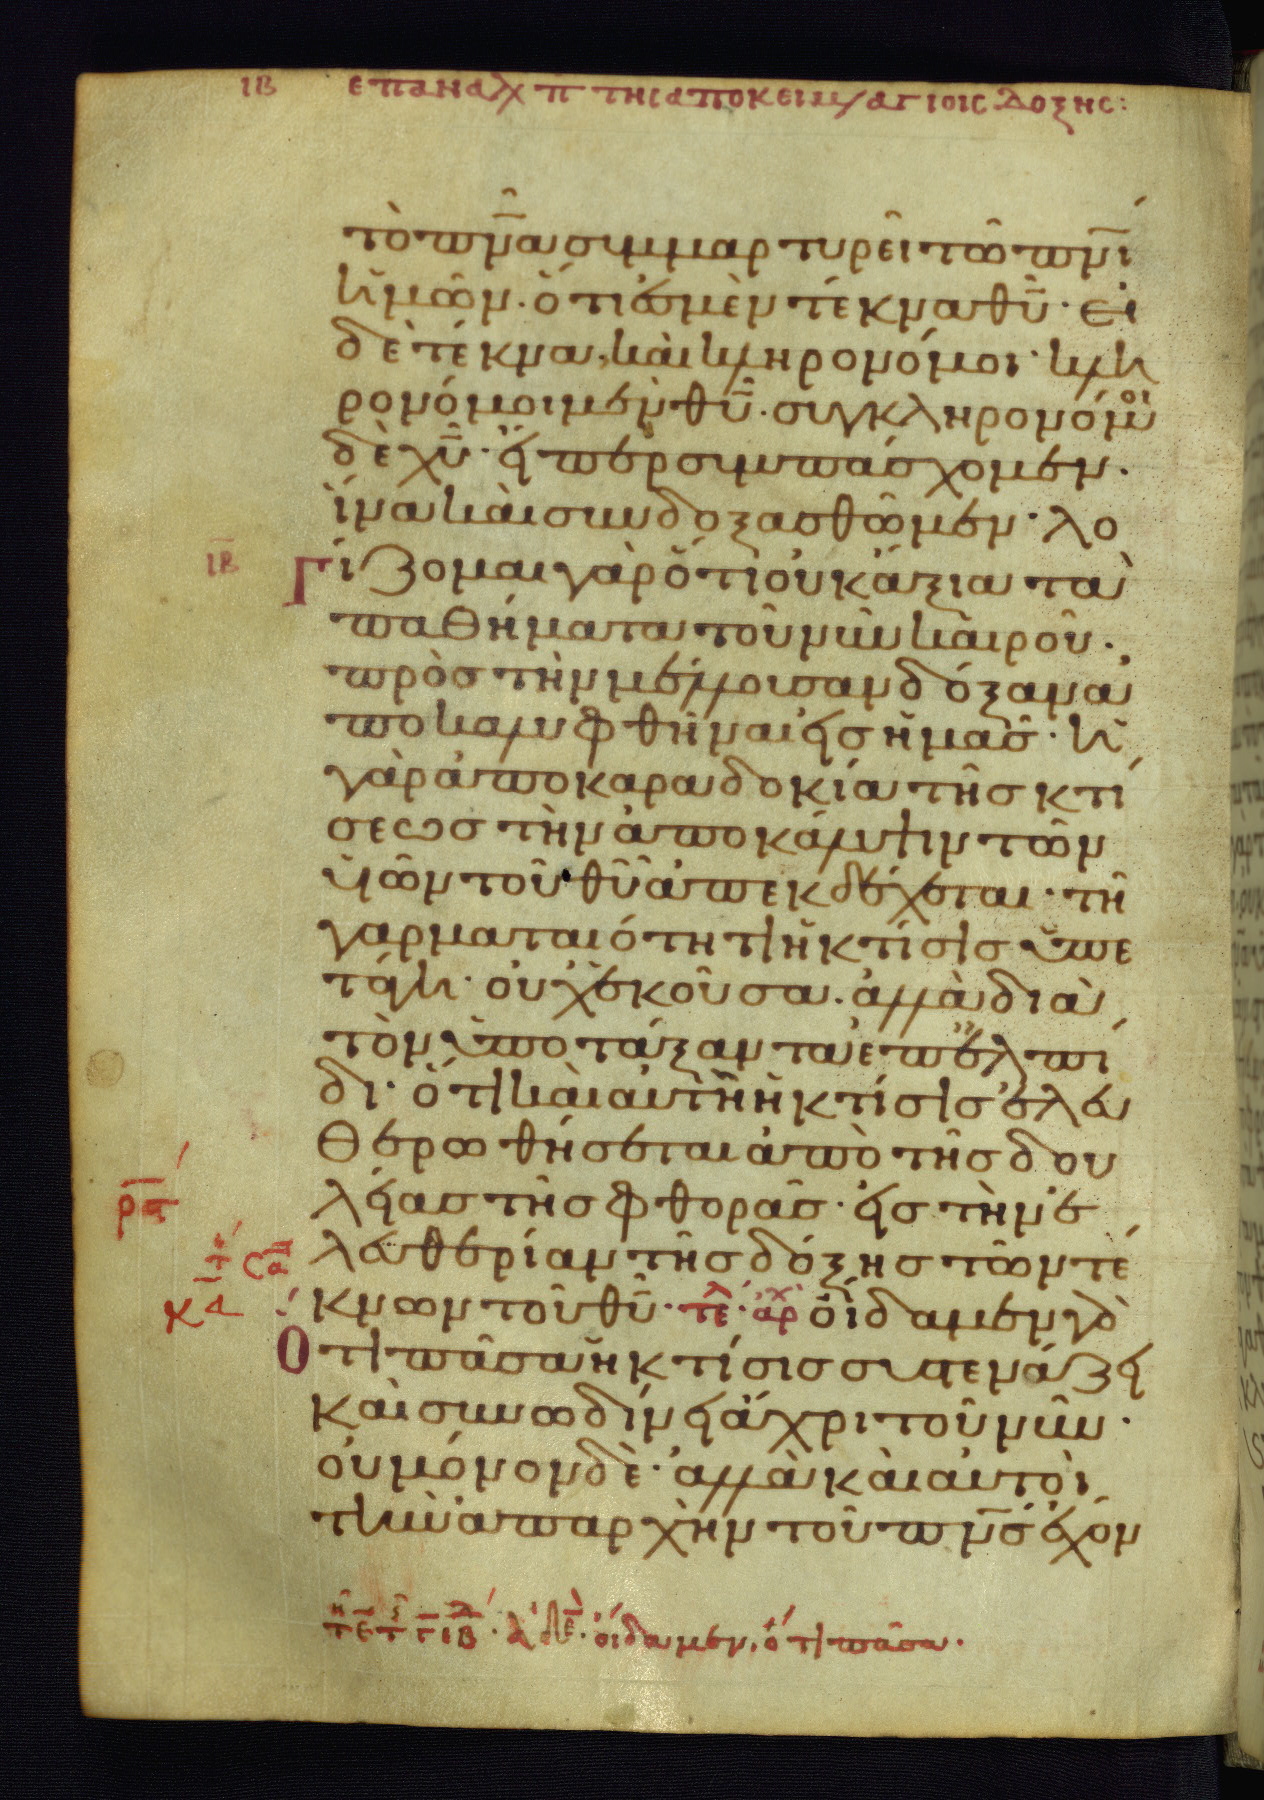 ΙΒ ΕΠΑΝΑΛ Π ΤΗΣ ΑΠΟΚΕΙΜ ΑΓΙΟΙΣ ΔΟΞΗΣ:
τὸ πν̅α συμμαρτυρεῖ τῶ πν̅ι
ἡμῶν· ὅτι ἐσμὲν τέκνα θυ̅· εἰ
δὲ τέκνα, καὶ κληρονόμοι· κλη
ρονόμοι μὲν θυ̅· συγκληρονόμοι
δὲ χυ̅· εἴπερ συμπάσχομεν·
ἵνα καὶ συνδοξασθῶμεν· λο
ΙΒ Γίζομαι γὰρ ὅτι οὐκ ἄξια τὰ
παθήματα τοῦ νῦν καιροῦ·
πρὸς τὴν μέλλουσαν δόξαν ἀ
ποκαλυφθῆναι εἰς ἡμᾶς· ἡ
γὰρ ἀποκαραδοκία τῆς κτί
σεως τὴν ἀποκάλυψιν τῶν
υἱῶν τοῦ θυ̅ ἀπεκδέχεται· τῆ
γὰρ ματαιότητι ἡ κτίσις ὑπε
τάγη· οὐχ ἑκοῦσα· ἀλλὰ διὰ
τὸν ὑποτάξαντα ἐπ' ἐλπί
δι· ὅτι καὶ αὐτὴ ἡ κτίσις ἐλευ
θερωθήσεται ἀπὸ τῆς δου
λείας τῆς φθορᾶς· εἰς τὴν ἐ
λευθερίαν τῆς δόξης τῶν τέ
κνων τοῦ θυ̅· τε̅λ· ἀρχ οἴδαμεν γὰρ
Ὅτι πᾶσα ἡ κτίσις συστενάζει
καὶ συνωδίνει ἄχρι τοῦ νῦν·
οὐ μόνον δὲ· ἀλλὰ καὶ αὐτοὶ
τὴν ἀπαρχὴν τοῦ πν̅ς ἔχον
οἴδαμεν, ὅτι πᾶσα·